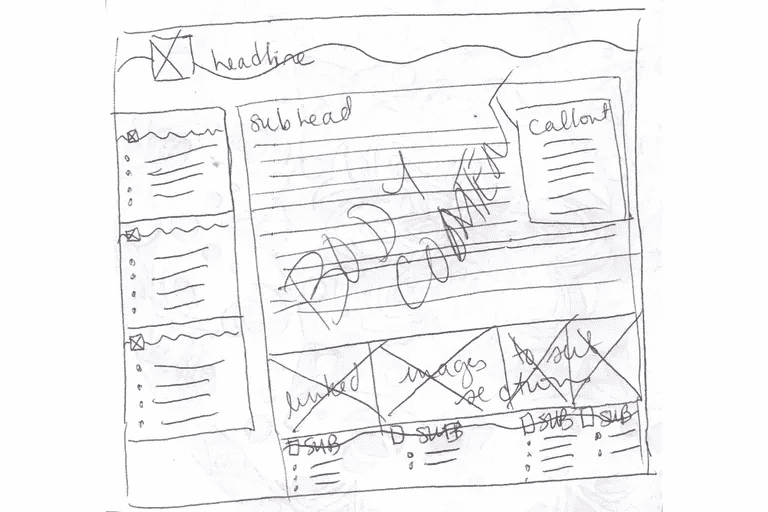 headline
subhead
callout
BODY
CONTENT
linked images to sub sections
SUB SUB SUB SUB